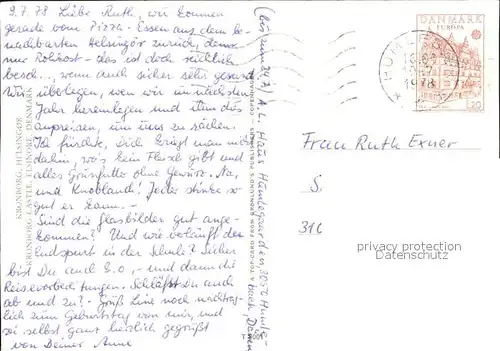 9.7.78 Liebe Ruth, wir kommen
gerade vom Pizza-Essen aus dem be-
nachbarten Helsingör zurück, denn
nur Rohkost - das ist doch reichlich
besch..., wenn auch sicher sehr gesund
Wir überlegen, wen wir im nächsten
Jahr hereinlegen und ihm das
anpreisen, um uns zu rächen.
Ich fürchte, Dich kriegt man nur
dahin, wo's ein Fleisch gibt und
alles Grünfutter ohne Gewürz. Na,
und Knoblauch! Jeder stinke so
gut er kann. -
Sind die Glasbilder gut ange-
kommen? Und wie verläuft der
Endspurt in der Schule? Sicher
bist Du auch g.o., - und dann die
Reisevorbereitungen. Schläfst Du auch
ab und zu? - Grüß Line noch nachträg-
lich zum Geburtstag von mir, und
sei selbst ganz herzlich gegrüßt
von Deiner Anne
(bis zum 24.7.) A.L. Haus Humlegaarden, 3050 Humle-
baek, Dänem.
KRONBORG, HELSINGØR
KRONBORG CASTLE, ELSINORE, DENMARK
DANMARK
EUROPA
120
HUMLEBÆK
1978
Frau Ruth Exner
S.
316
privacy protection
AnsichtskartenPool.de